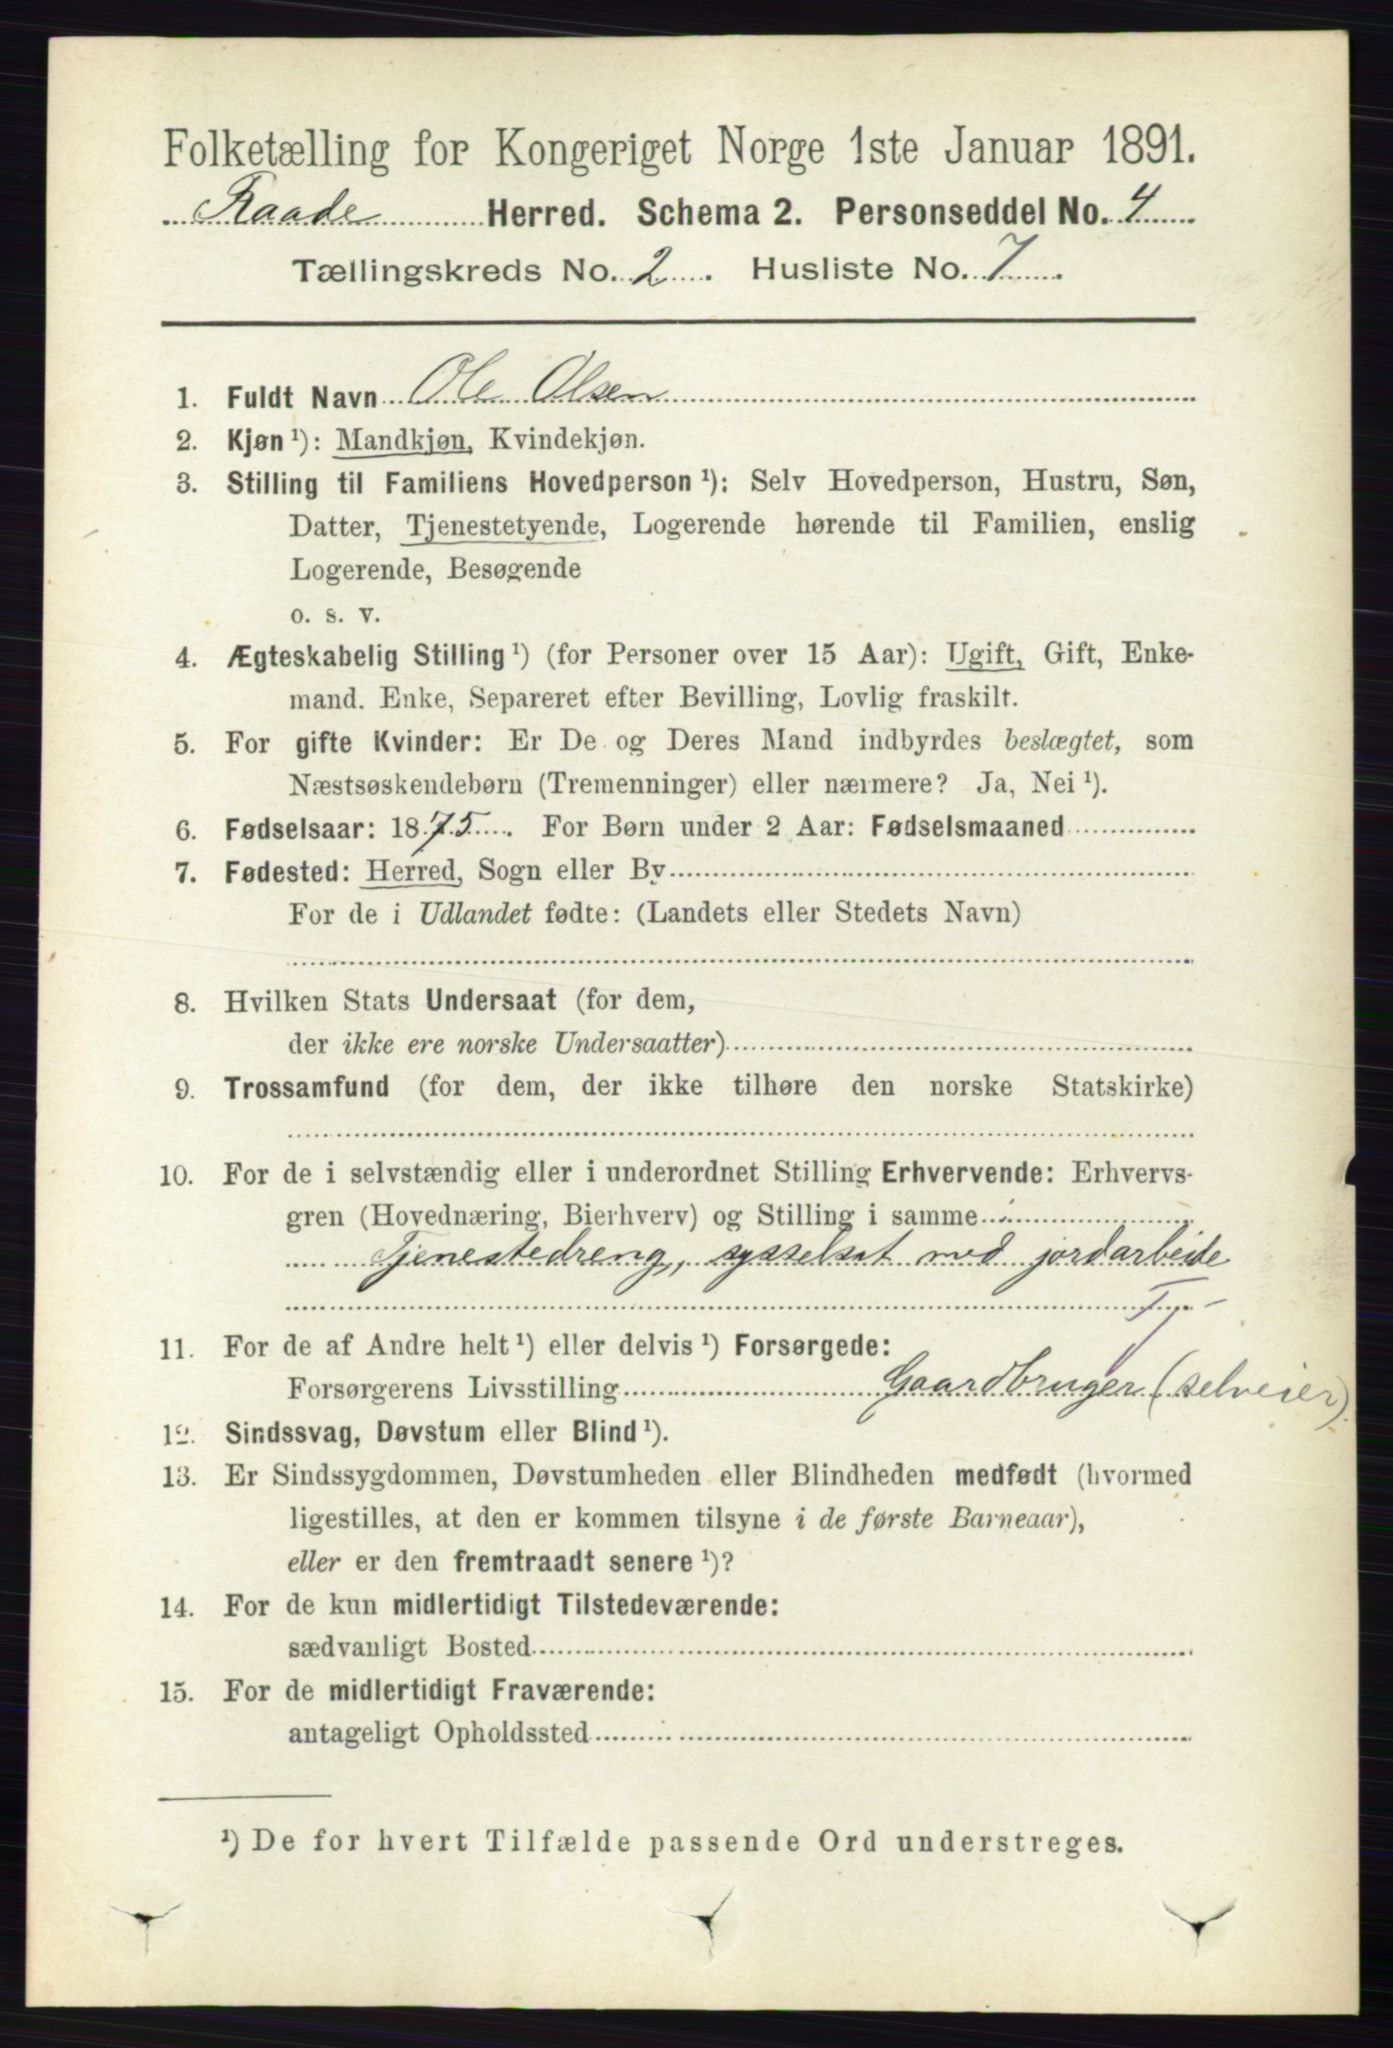 Folketælling for Kongeriget Norge 1ste Januar 1891.
Raade Herred. Schema 2. Personseddel No. 4
Tællingskreds No. 2. Husliste No. 7.
1. Fuldt Navn Ole Olsen
2. Kjøn ¹): Mandkjøn, Kvindekjøn.
3. Stilling til Familiens Hovedperson ¹): Selv Hovedperson, Hustru, Søn,
Datter, Tjenestetyende, Logerende hørende til Familien, enslig
Logerende, Besøgende
o. s. v.
4. Ægteskabelig Stilling ¹) (for Personer over 15 Aar): Ugift, Gift, Enke-
mand. Enke, Separeret efter Bevilling, Lovlig fraskilt.
5. For gifte Kvinder: Er De og Deres Mand indbyrdes beslægtet, som
Næstsøskendebørn (Tremenninger) eller nærmere? Ja, Nei ¹).
6. Fødselsaar: 1875. For Børn under 2 Aar: Fødselsmaaned
7. Fødested: Herred, Sogn eller By
For de i Udlandet fødte: (Landets eller Stedets Navn)
8. Hvilken Stats Undersaat (for dem,
der ikke ere norske Undersaatter)
9. Trossamfund (for dem, der ikke tilhøre den norske Statskirke)
10. For de i selvstændig eller i underordnet Stilling Erhvervende: Erhvervs-
gren (Hovednæring, Bierhverv) og Stilling i samme
Tjenestedreng, sysselsat med jordarbeide
11. For de af Andre helt ¹) eller delvis ¹) Forsørgede:
Forsørgerens Livsstilling Gaardbruger (selveier)
12. Sindssvag, Døvstum eller Blind ¹).
13. Er Sindssygdommen, Døvstumheden eller Blindheden medfødt (hvormed
ligestilles, at den er kommen tilsyne i de første Barneaar),
eller er den fremtraadt senere ¹)?
14. For de kun midlertidigt Tilstedeværende:
sædvanligt Bosted
15. For de midlertidigt Fraværende:
antageligt Opholdssted
¹) De for hvert Tilfælde passende Ord understreges.